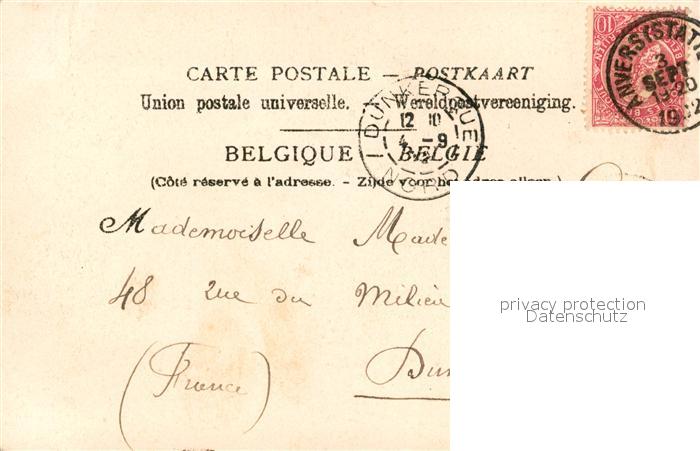 CARTE POSTALE — POSTKAART
Union postale universelle. Wereldpostvereeniging.
BELGIQUE — BELGIE
(Côté réservé à l'adresse. - Zijde voor het adres alleen.)
10
ANVERS (STAT
3
SEPT
19
DUNKERQUE
12 10
4 - 9
NORD
Mademoiselle Made
48 rue du Milieu
Dun
(France)
privacy protection
Datenschutz